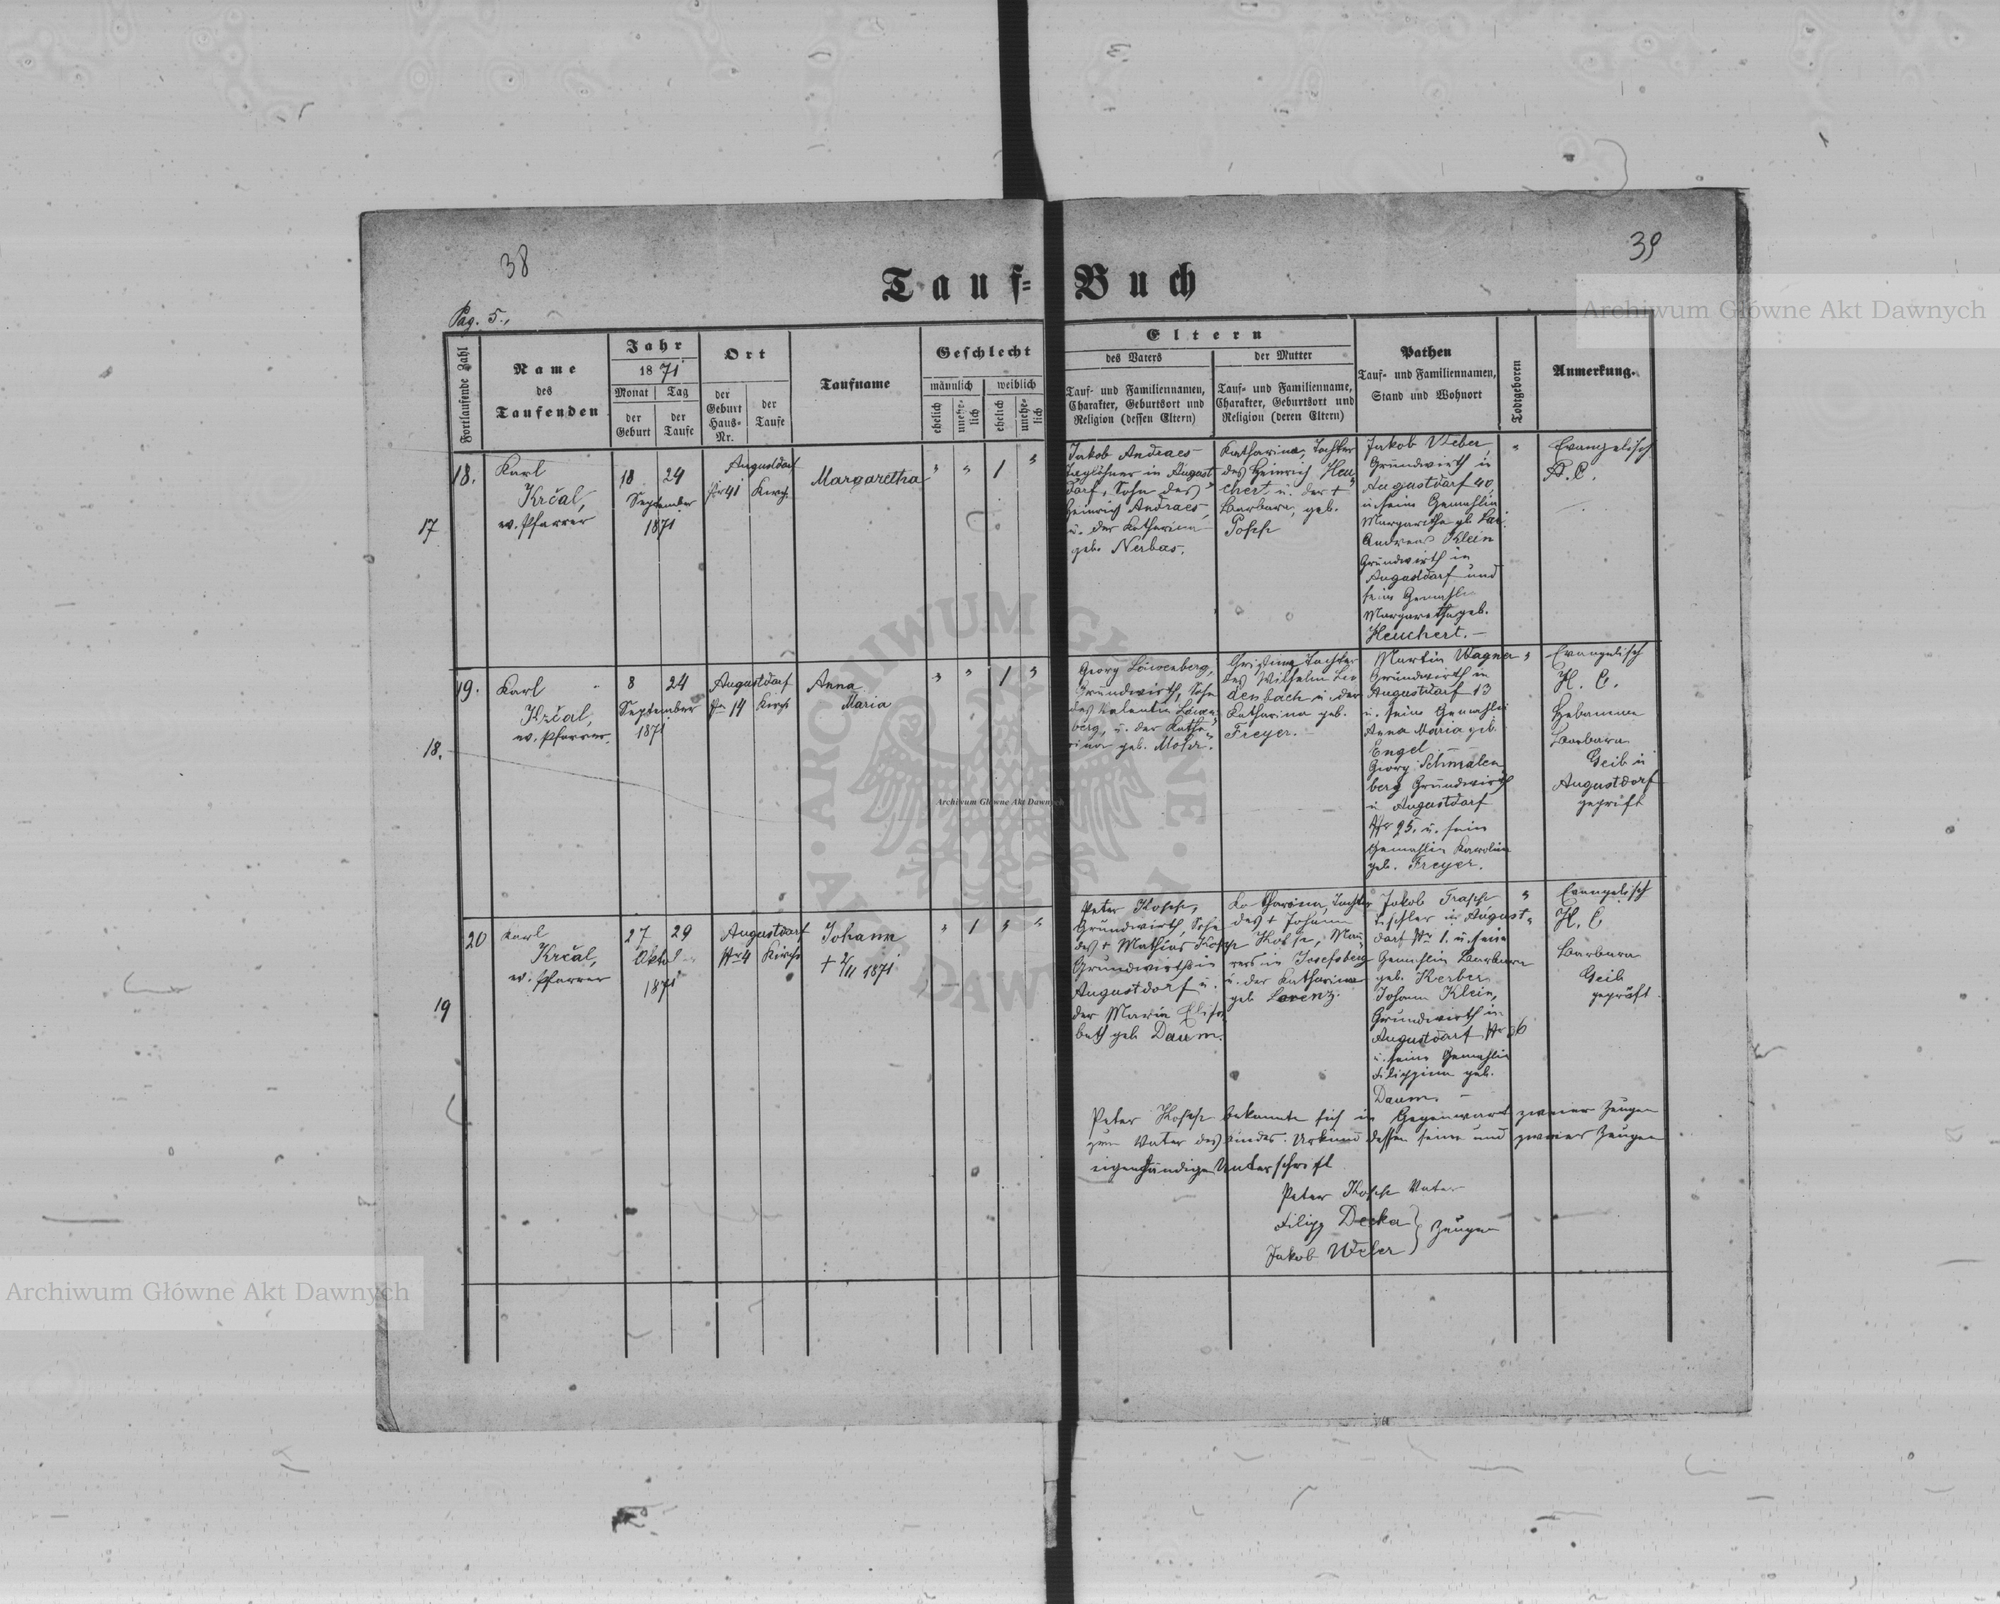 38
39
Tauf=Buch
Pag. 5.,
Fortlaufende Zahl
Name
des
Taufenden
Jahr
1871
Monat
Tag
der
Geburt
der
Taufe
Ort
der
Geburt
Haus=
Nr.
der
Taufe
Taufname
Geschlecht
männlich
weiblich
ehelich
unehe=
lich
ehelich
unehe=
lich
Eltern
des Vaters
der Mutter
Tauf= und Familiennamen,
Charakter, Geburtsort und
Religion (dessen Eltern)
Tauf= und Familienname,
Charakter, Geburtsort und
Religion (deren Eltern)
Pathen
Tauf= und Familiennamen,
Stand und Wohnort
Todtgeboren
Anmerkung.
18.
17
Karl
Krčal,
ev. Pfarrer
18
24
September
1871
Augustdorf
Nr 41
Kirche
Margaretha
" " 1 "
Jakob Andraes
Taglöhner in August
dorf, Sohn des
Heinrich Andraes
u. der Katharina
geb. Nerbas.
Katharina, Tochter
des Heinrich Heu
chert, u. der +
Barbara, geb.
Posch
Jakob Weber,
Grundwirth in
Augustdorf 40,
u. seine Gemahlin
Margaretha gb.
Andreas Klein
Grundwirth in
Augustdorf und
seine Gemahlin
Margaretha geb.
Heuchert. —
"
Evangelisch
A. C.
19.
18.
Karl
Krčal,
ev. Pfarrer.
8
24
September
1871
Augustdorf
Nr 14
Kirche
Anna
Maria
" " 1 "
Georg Löwenberg,
Grundwirth, Sohn
des Valentin Löwen
berg, u. der Katha
rina geb. Moser.
Christina Tochter
des Wilhelm Lie
denbach u. der
Katharina geb.
Freyer.
Martin Wagner
Grundwirth in
Augustdorf 13
u. seine Gemahlin
Anna Maria geb.
Engel
Georg Schmalen
berg Grundwirth
in Augustdorf
Nr 25. u. seine
Gemahlin Karolina
geb. Freyer.
"
Evangelisch
H. C.
Hebamme
Barbara
Geib in
Augustdorf
geprüft
20
19
Karl
Krčal,
ev. Pfarrer
27
29
Oktober
1871
Augustdorf
Nr 4
Kirche
Johann
+ 2/11 1871
" 1 " "
Peter Kosch,
Grundwirth, Sohn
des + Mathias Kosch
Grundwirths in
Augustdorf u.
der Maria Elisa
beth geb. Daum.
Katharina, Tochter
des + Johann
Kosch, Mau
rers in Josefsberg
u. der Katharina
geb. Lorenz.
Jakob Frasch
Tischler in August
dorf Nr 1. u. seine
Gemahlin Barbara
geb. Kerber
Johann Klein,
Grundwirth in
Augustdorf Nr 36
u. seine Gemahlin
Filippina geb.
Daum. —
"
Evangelisch
H. C.
Barbara
Geib
geprüft
Peter Kosch bekannte sich in Gegenwart zweier Zeugen
zum Vater des Kindes. Urkund dessen seine und zweier Zeugen
eigenhändige Unterschrift
Peter Kosch Vater
Filipp Decka
Jakob Weber
Zeugen
Archiwum Główne Akt Dawnych
Archiwum Główne Akt Dawnych
Archiwum Główne Akt Dawnych